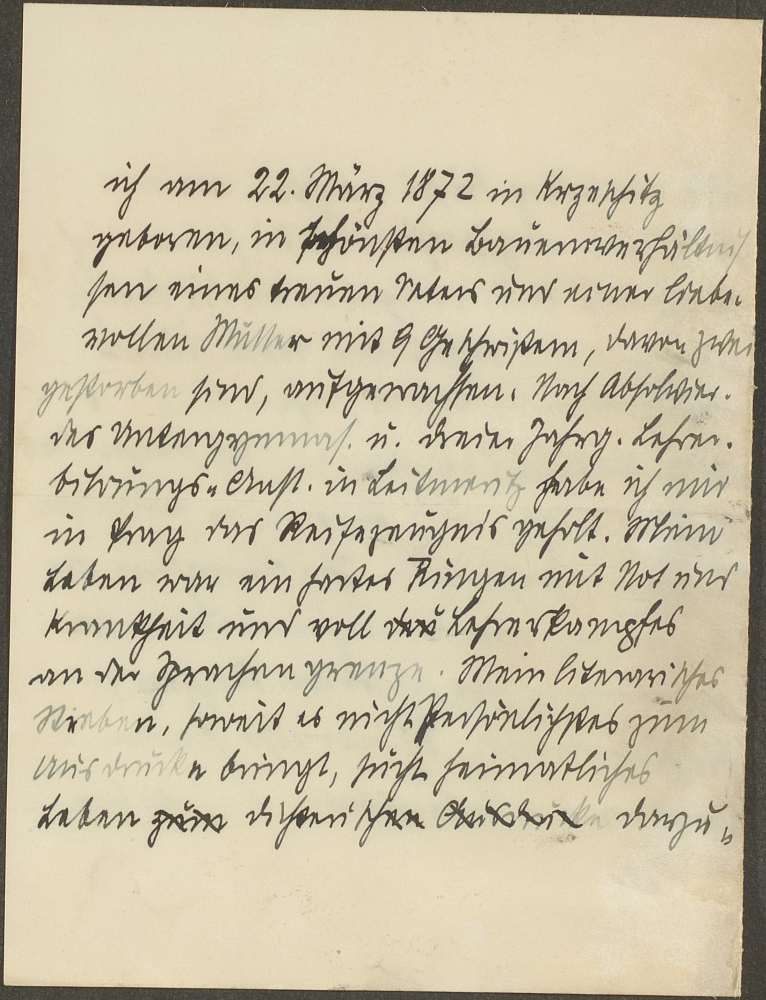 ich am 22. März 1872 in Krzeschitz
geboren, in schönsten Bauernverhältnis
sen eines treuen Vaters und einer liebe-
vollen Mutter mit 9 Geschwistern, davon zwei
gestorben sind, aufgewachsen. Nach Absolvier.
des Untergymnas. u. dreier Jahrg. Lehrer-
bildungs-Anst. in Leitmeritz habe ich mir
in Prag das Reifezeugnis geholt. Mein
Leben war ein hartes Ringen mit Not und
Krankheit und voll des Lehrerkampfes
an der Sprachengrenze. Mein literarisches
Streben, soweit es nicht Persönlichstes zum
Ausdrucke bringt, sucht heimatliches
Leben zum dichterischen Ausdrucke darzu-